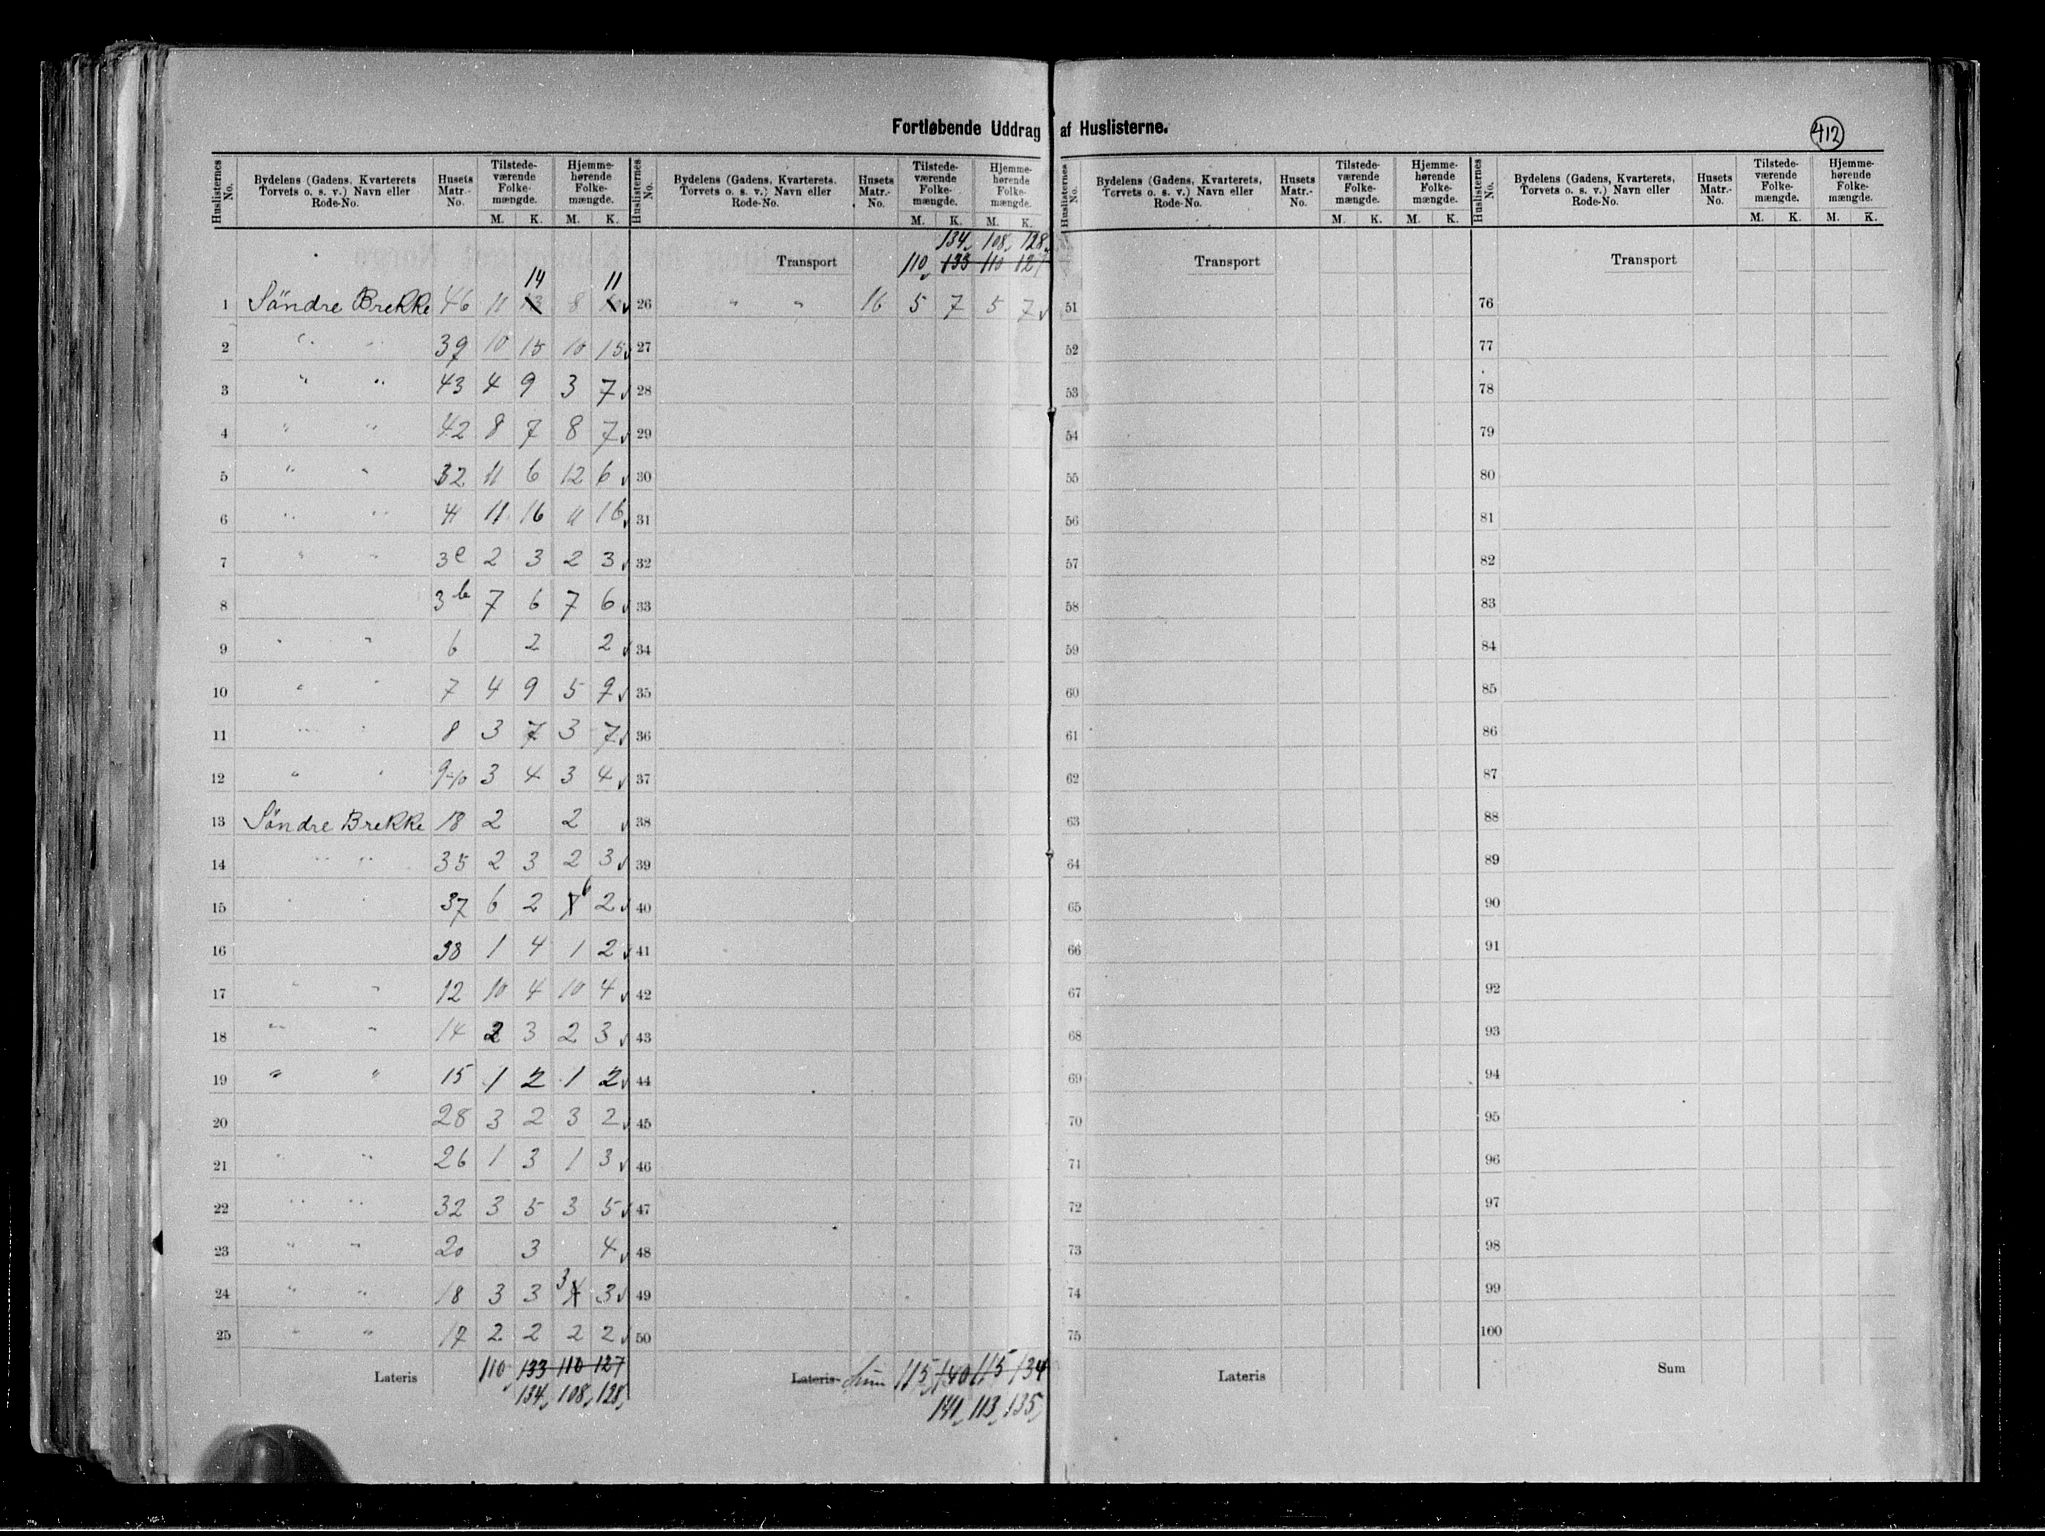 Fortløbende Uddrag af Huslisterne.
412
Huslisternes No. Bydelens (Gadens, Kvarterets Torvets o. s. v.) Navn eller Rode-No. Husets Matr.-No. Tilstedeværende Folkemængde. M. K. Hjemmehørende Folkemængde. M. K.
14 11
1 Söndre Brekke 46 11 13 8 10
2 " " 39 10 15 10 15
3 " " 43 4 9 3 7
4 " " 42 8 7 8 7
5 " " 32 11 6 12 6
6 " " 41 11 16 11 16
7 " " 3c 2 3 2 3
8 3b 7 6 7 6
9 " " 6 2 2
10 " " 7 4 9 5 9
11 " " 8 3 7 3 7
12 " " 9-10 3 4 3 4
13 Söndre Brekke 18 2 2
14 " " 35 2 3 2 3
15 " " 37 6 2 7 6 2
16 38 1 4 1 2
17 " " 12 10 4 10 4
18 " " 14 2 3 2 3
19 " " 15 1 2 1 2
20 28 3 2 3 2
21 " " 26 1 3 1 3
22 " " 32 3 5 3 5
23 " " 20 3 4
24 " " 18 3 3 3 4 3
25 " " 17 2 2 2 2
Lateris 110 133 110 127
134 108 128
Huslisternes No. Bydelens (Gadens, Kvarterets, Torvets o. s. v.) Navn eller Rode-No. Husets Matr.-No. Tilstedeværende Folkemængde. M. K. Hjemmehørende Folkemængde. M. K.
134 108 128
Transport 110 133 110 127
26 " " 16 5 7 5 7
27
28
29
30
31
32
33
34
35
36
37
38
39
40
41
42
43
44
45
46
47
48
49
50
Lateris Sum 115 140 115 134
141 113 135
Huslisternes No. Bydelens (Gadens, Kvarterets, Torvets o. s. v.) Navn eller Rode-No. Husets Matr.-No. Tilstedeværende Folkemængde. M. K. Hjemmehørende Folkemængde. M. K.
Transport
51
52
53
54
55
56
57
58
59
60
61
62
63
64
65
66
67
68
69
70
71
72
73
74
75
Lateris
Huslisternes No. Bydelens (Gadens, Kvarterets, Torvets o. s. v.) Navn eller Rode-No. Husets Matr.-No. Tilstedeværende Folkemængde. M. K. Hjemmehørende Folkemængde. M. K.
Transport
76
77
78
79
80
81
82
83
84
85
86
87
88
89
90
91
92
93
94
95
96
97
98
99
100
Sum